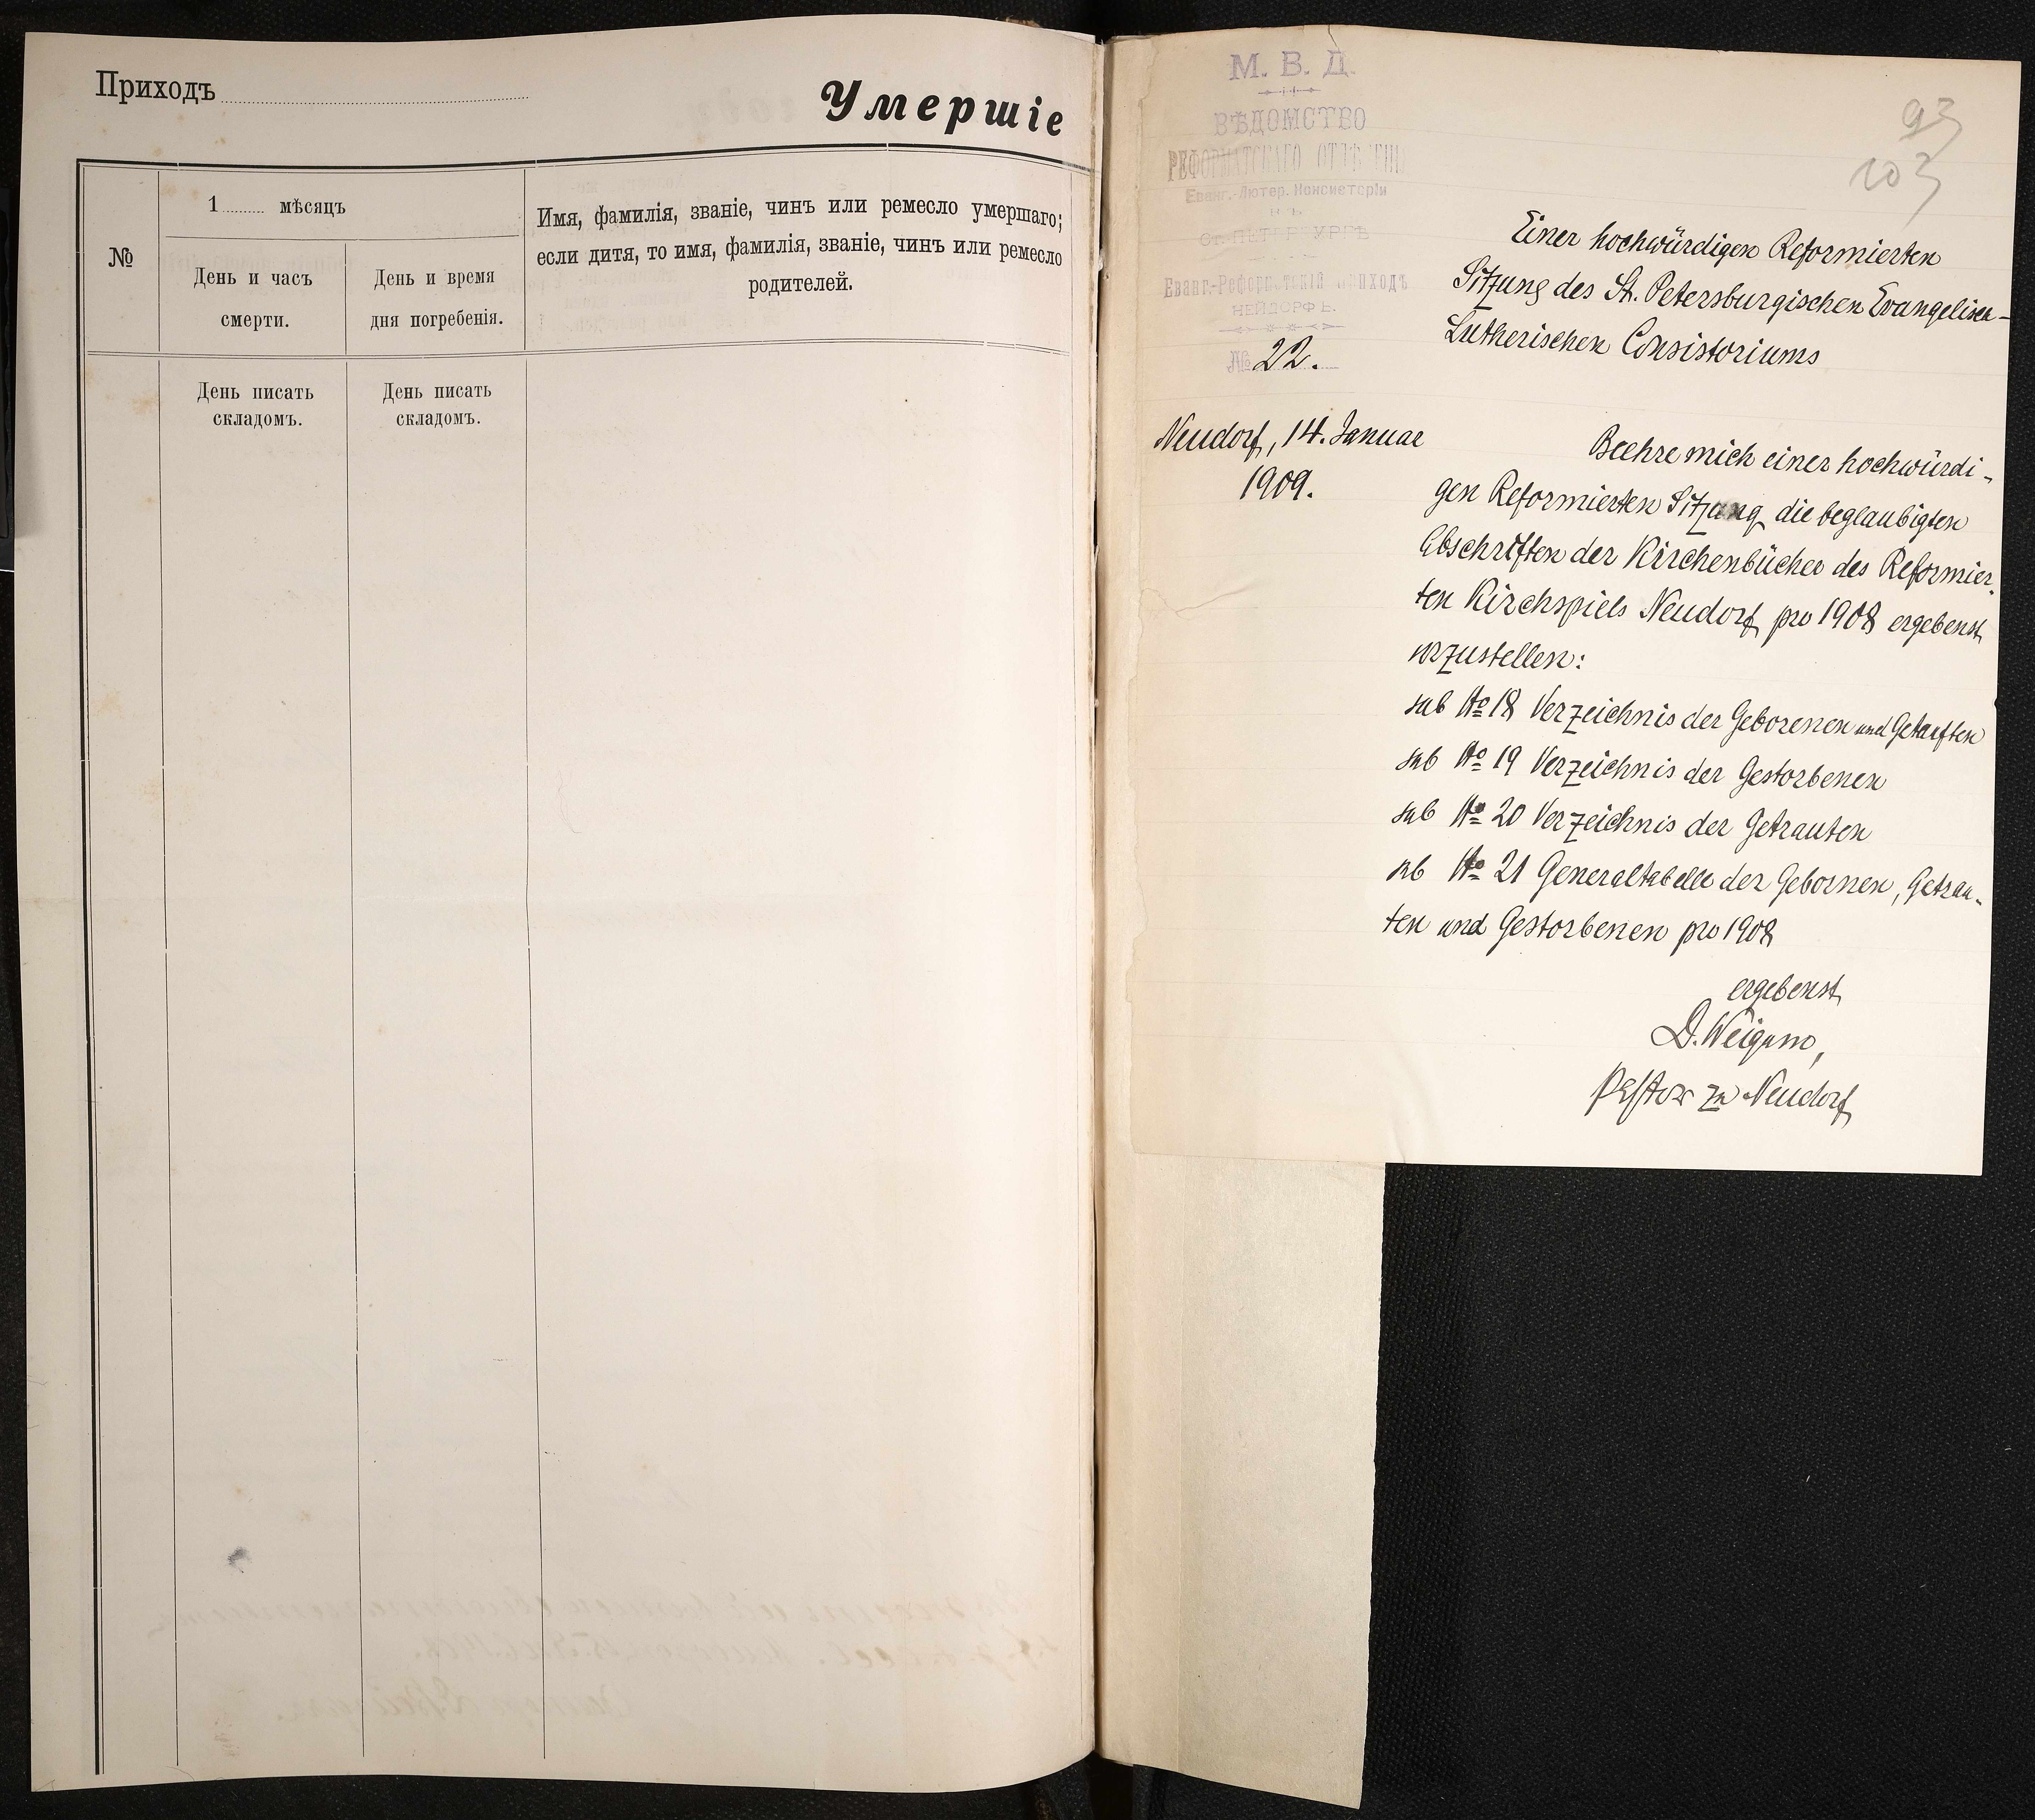 Приходъ
Умершіе
№
1 мѣсяцъ
День и часъ
смерти.
День и время
дня погребенія.
Имя, фамилія, званіе, чинъ или ремесло умершаго;
если дитя, то имя, фамилія, званіе, чинъ или ремесло
родителей.
День писать
складомъ.
День писать
складомъ.
М. В. Д.
ВѢДОМСТВО
РЕФОРМАТСКАГО
Еванг.-Лютер. Консисторіи
НЕЙДОРФЪ.
№ 22.
93
103
Einer hochwürdigen Reformierten
Sitzung des St. Petersburgischen Evangelisch-
Lutherischen Consistoriums
Neudorf, 14. Januar
1909.
Beehre mich einer hochwürdi-
gen Reformierten Sitzung die beglaubigten
Abschriften der Kirchenbücher des Reformier-
ten Kirchspiels Neudorf pro 1908 ergebenst
vorzustellen:
sub No 18 Verzeichnis der Geborenen und Getauften
sub No 19 Verzeichnis der Gestorbenen
sub No 20 Verzeichnis der Getrauten
sub No 21 Generaltabelle der Gebornen, Getrau-
ten und Gestorbenen pro 1908
ergebenst
D. Weigum,
Pastor zu Neudorf